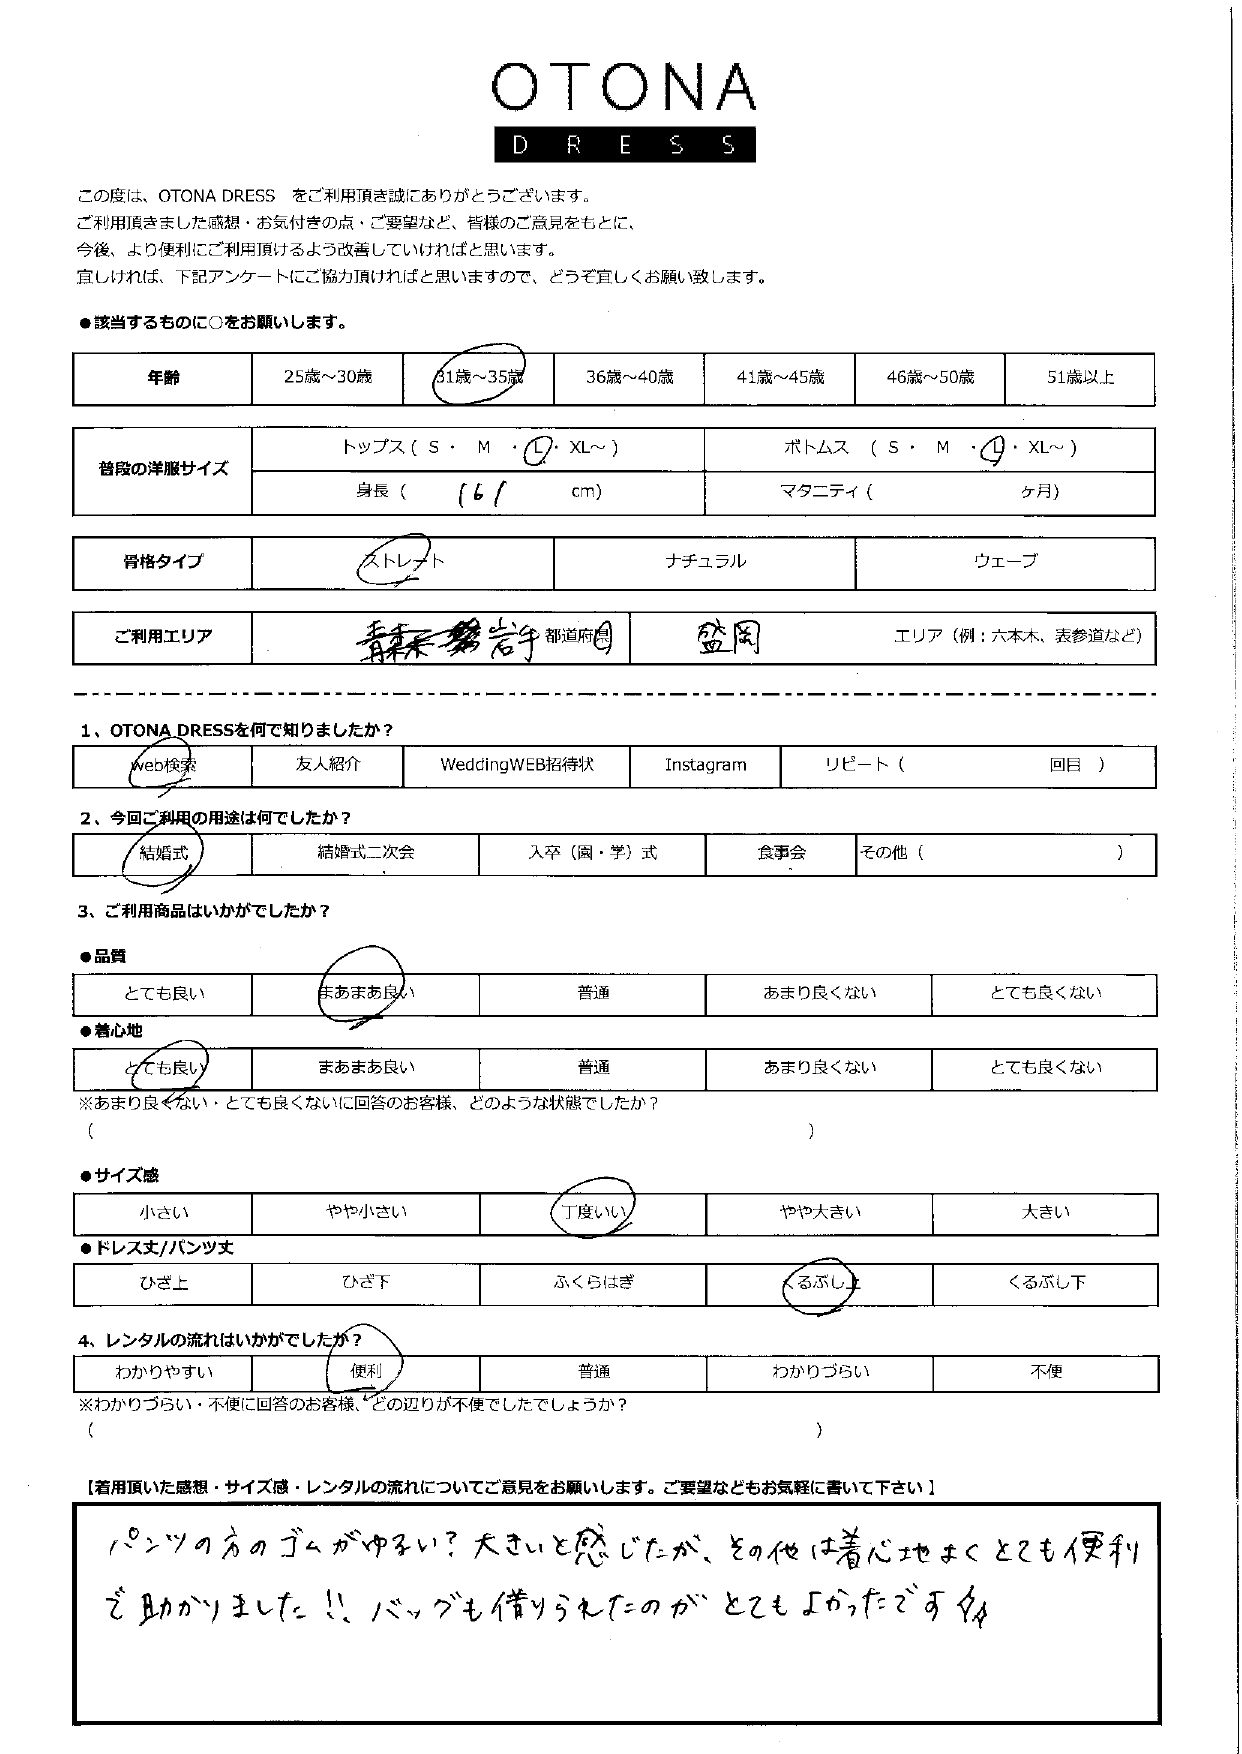 OTONA
DRESS
この度は、OTONA DRESS　をご利用頂き誠にありがとうございます。
ご利用頂きました感想・お気付きの点・ご要望など、皆様のご意見をもとに、
今後、より便利にご利用頂けるよう改善していければと思います。
宜しければ、下記アンケートにご協力頂ければと思いますので、どうぞ宜しくお願い致します。
●該当するものに○をお願いします。
年齢 25歳～30歳 31歳～35歳 36歳～40歳 41歳～45歳 46歳～50歳 51歳以上
普段の洋服サイズ トップス ( S ・ M ・ L ・ XL～ ) ボトムス ( S ・ M ・ L ・ XL～ )
身長 ( 161 cm) マタニティ ( ヶ月)
骨格タイプ ストレート ナチュラル ウェーブ
ご利用エリア 岩手 都道府県 盛岡 エリア（例：六本木、表参道など）
1、OTONA DRESSを何で知りましたか？
web検索 友人紹介 WeddingWEB招待状 Instagram リピート ( 回目 )
2、今回ご利用の用途は何でしたか？
結婚式 結婚式二次会 入卒（園・学）式 食事会 その他 ( )
3、ご利用商品はいかがでしたか？
●品質
とても良い まあまあ良い 普通 あまり良くない とても良くない
●着心地
とても良い まあまあ良い 普通 あまり良くない とても良くない
※あまり良くない・とても良くないに回答のお客様、どのような状態でしたか？
( )
●サイズ感
小さい やや小さい 丁度いい やや大きい 大きい
●ドレス丈/パンツ丈
ひざ上 ひざ下 ふくらはぎ くるぶし上 くるぶし下
4、レンタルの流れはいかがでしたか？
わかりやすい 便利 普通 わかりづらい 不便
※わかりづらい・不便に回答のお客様、どの辺りが不便でしたでしょうか？
( )
【着用頂いた感想・サイズ感・レンタルの流れについてご意見をお願いします。ご要望などもお気軽に書いて下さい】
パンツの方のゴムがゆるい？大きいと感じたが、その他は着心地よくとても便利
で助かりました!! バッグも借りられたのがとてもよかったです